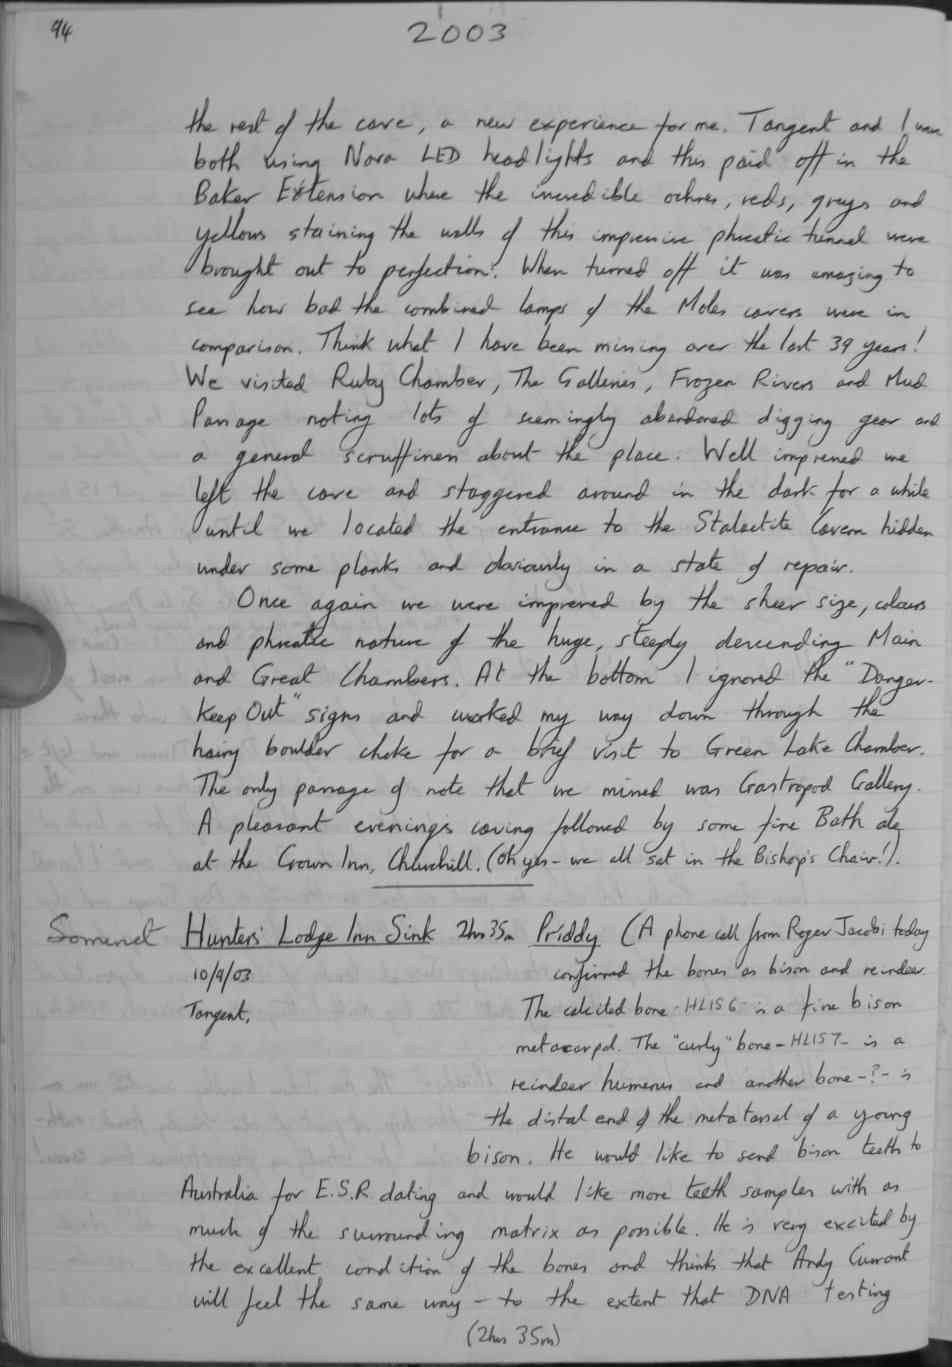 94
2003
the rest of the cave, a new experience for me. Tangent and I were
both using Nova LED headlights and this paid off in the
Baker Extension where the incredible ochres, reds, greys and
yellows staining the walls of this impressive phreatic tunnel were
brought out to perfection. When turned off it was amazing to
see how bad the combined lamps of the Moles cavers were in
comparison. Think what I have been missing over the last 39 years!
We visited Ruby Chamber, The Galleries, Frozen Rivers and Mud
Passage noting lots of seemingly abandoned digging gear and
a general scruffiness about the place. Well impressed we
left the cave and staggered around in the dark for a while
until we located the entrance to the Stalactite Cavern hidden
under some planks and obviously in a state of repair.
Once again we were impressed by the sheer size, colours
and phreatic nature of the huge, steeply descending Main
and Great Chambers. At the bottom I ignored the "Danger-
Keep Out" signs and worked my way down through the
hairy boulder choke for a brief visit to Green Lake Chamber.
The only passage of note that we missed was Gastropod Gallery.
A pleasant evenings caving followed by some fine Bath ale
at the Crown Inn, Churchill. (Oh yes - we all sat in the Bishop's Chair!).
Somerset Hunters' Lodge Inn Sink 2hrs 35m Priddy (A phone call from Roger Jacobi today
10/9/03 confirmed the bones as bison and reindeer.
Tangent, The calcited bone - HLIS 6 - is a fine bison
metacarpal. The "curly" bone - HLIS 7 - is a
reindeer humerus and another bone -?- is
the distal end of the metatarsal of a young
bison. He would like to send bison teeth to
Australia for E.S.R dating and would like more teeth samples with as
much of the surrounding matrix as possible. He is very excited by
the excellent condition of the bones and thinks that Andy Currant
will feel the same way - to the extent that DNA testing
(2hrs 35m)